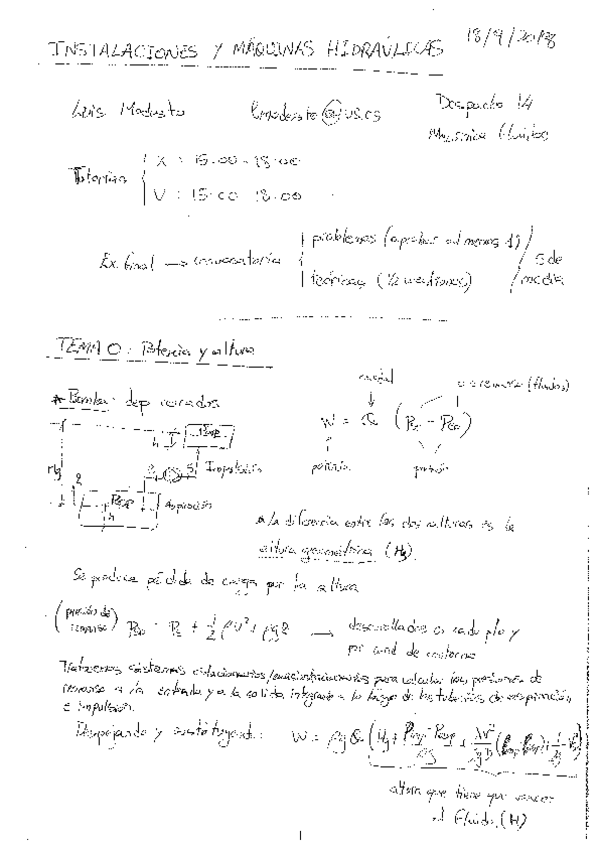 INSTALACIONES Y MÁQUINAS HIDRAÚLICAS 18/9/2018
Luis Modesto lmodesto@us.es Despacho 14
Mecánica fluidos
Tutorías X: 15:00-18:00
V: 15:00-18:00
Ex. final → convocatoria problemas (aprobar al menos 1) 5 de
teóricas (12 cuestiones) media
TEMA 0: Potencia y altura
caudal remanso (fluidos)
* Bomba: dep cerrados
W = Q (P - P)
h
Hg Impulsión potencia presión
z aspiración
h
a la diferencia entre las dos alturas es la
altura geométrica (Hg)
Se produce pérdida de carga por la altura
(presión de remanso) P = P + 1/2 ρv² + ρgz → desarrollados en cada pto y
por cond. de contorno
Tratamos sistemas estacionarios/ para calcular las presiones de
remanso a la entrada y a la salida integrando a lo largo de las tuberías de aspiración
e impulsión.
Despejando y sustituyendo: W = ρgQ (Hg +
altura que tiene que vencer
el fluido (H)
1